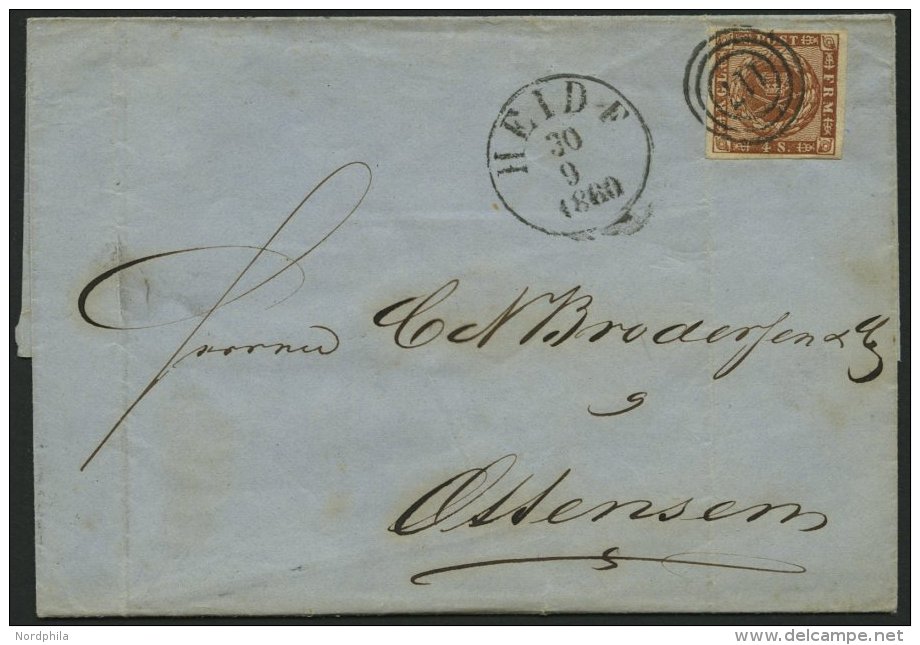 KGL POST FRM 4 S.
HEIDE
30
9
1860
Herren C N Brodersen & Co
Ottensen
Nordphila
www.delcampe.net